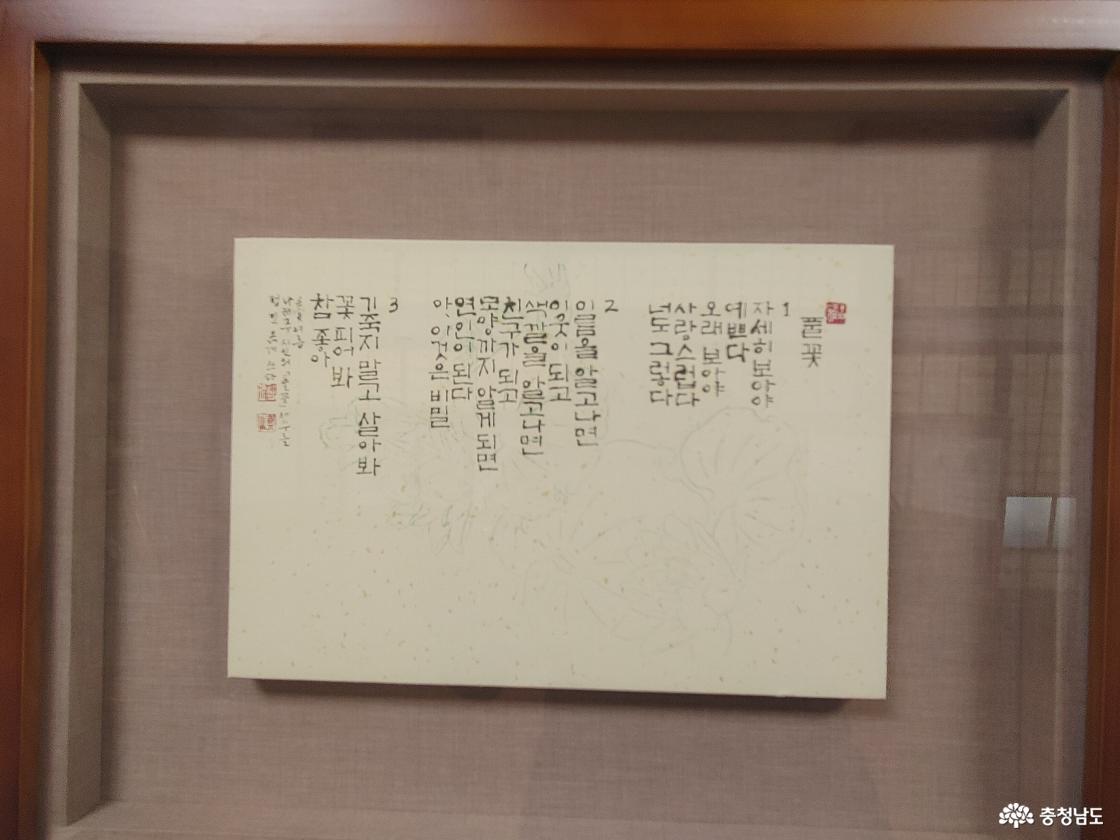 풀꽃
1
자세히 보아야
예쁘다
오래 보아야
사랑스럽다
너도 그렇다
2
이름을 알고나면
이웃이 되고
색깔을 알고나면
친구가 되고
모양까지 알게 되면
연인이 된다
아 이것은 비밀
3
기죽지 말고 살아봐
꽃 피어 봐
참 좋아
충청남도